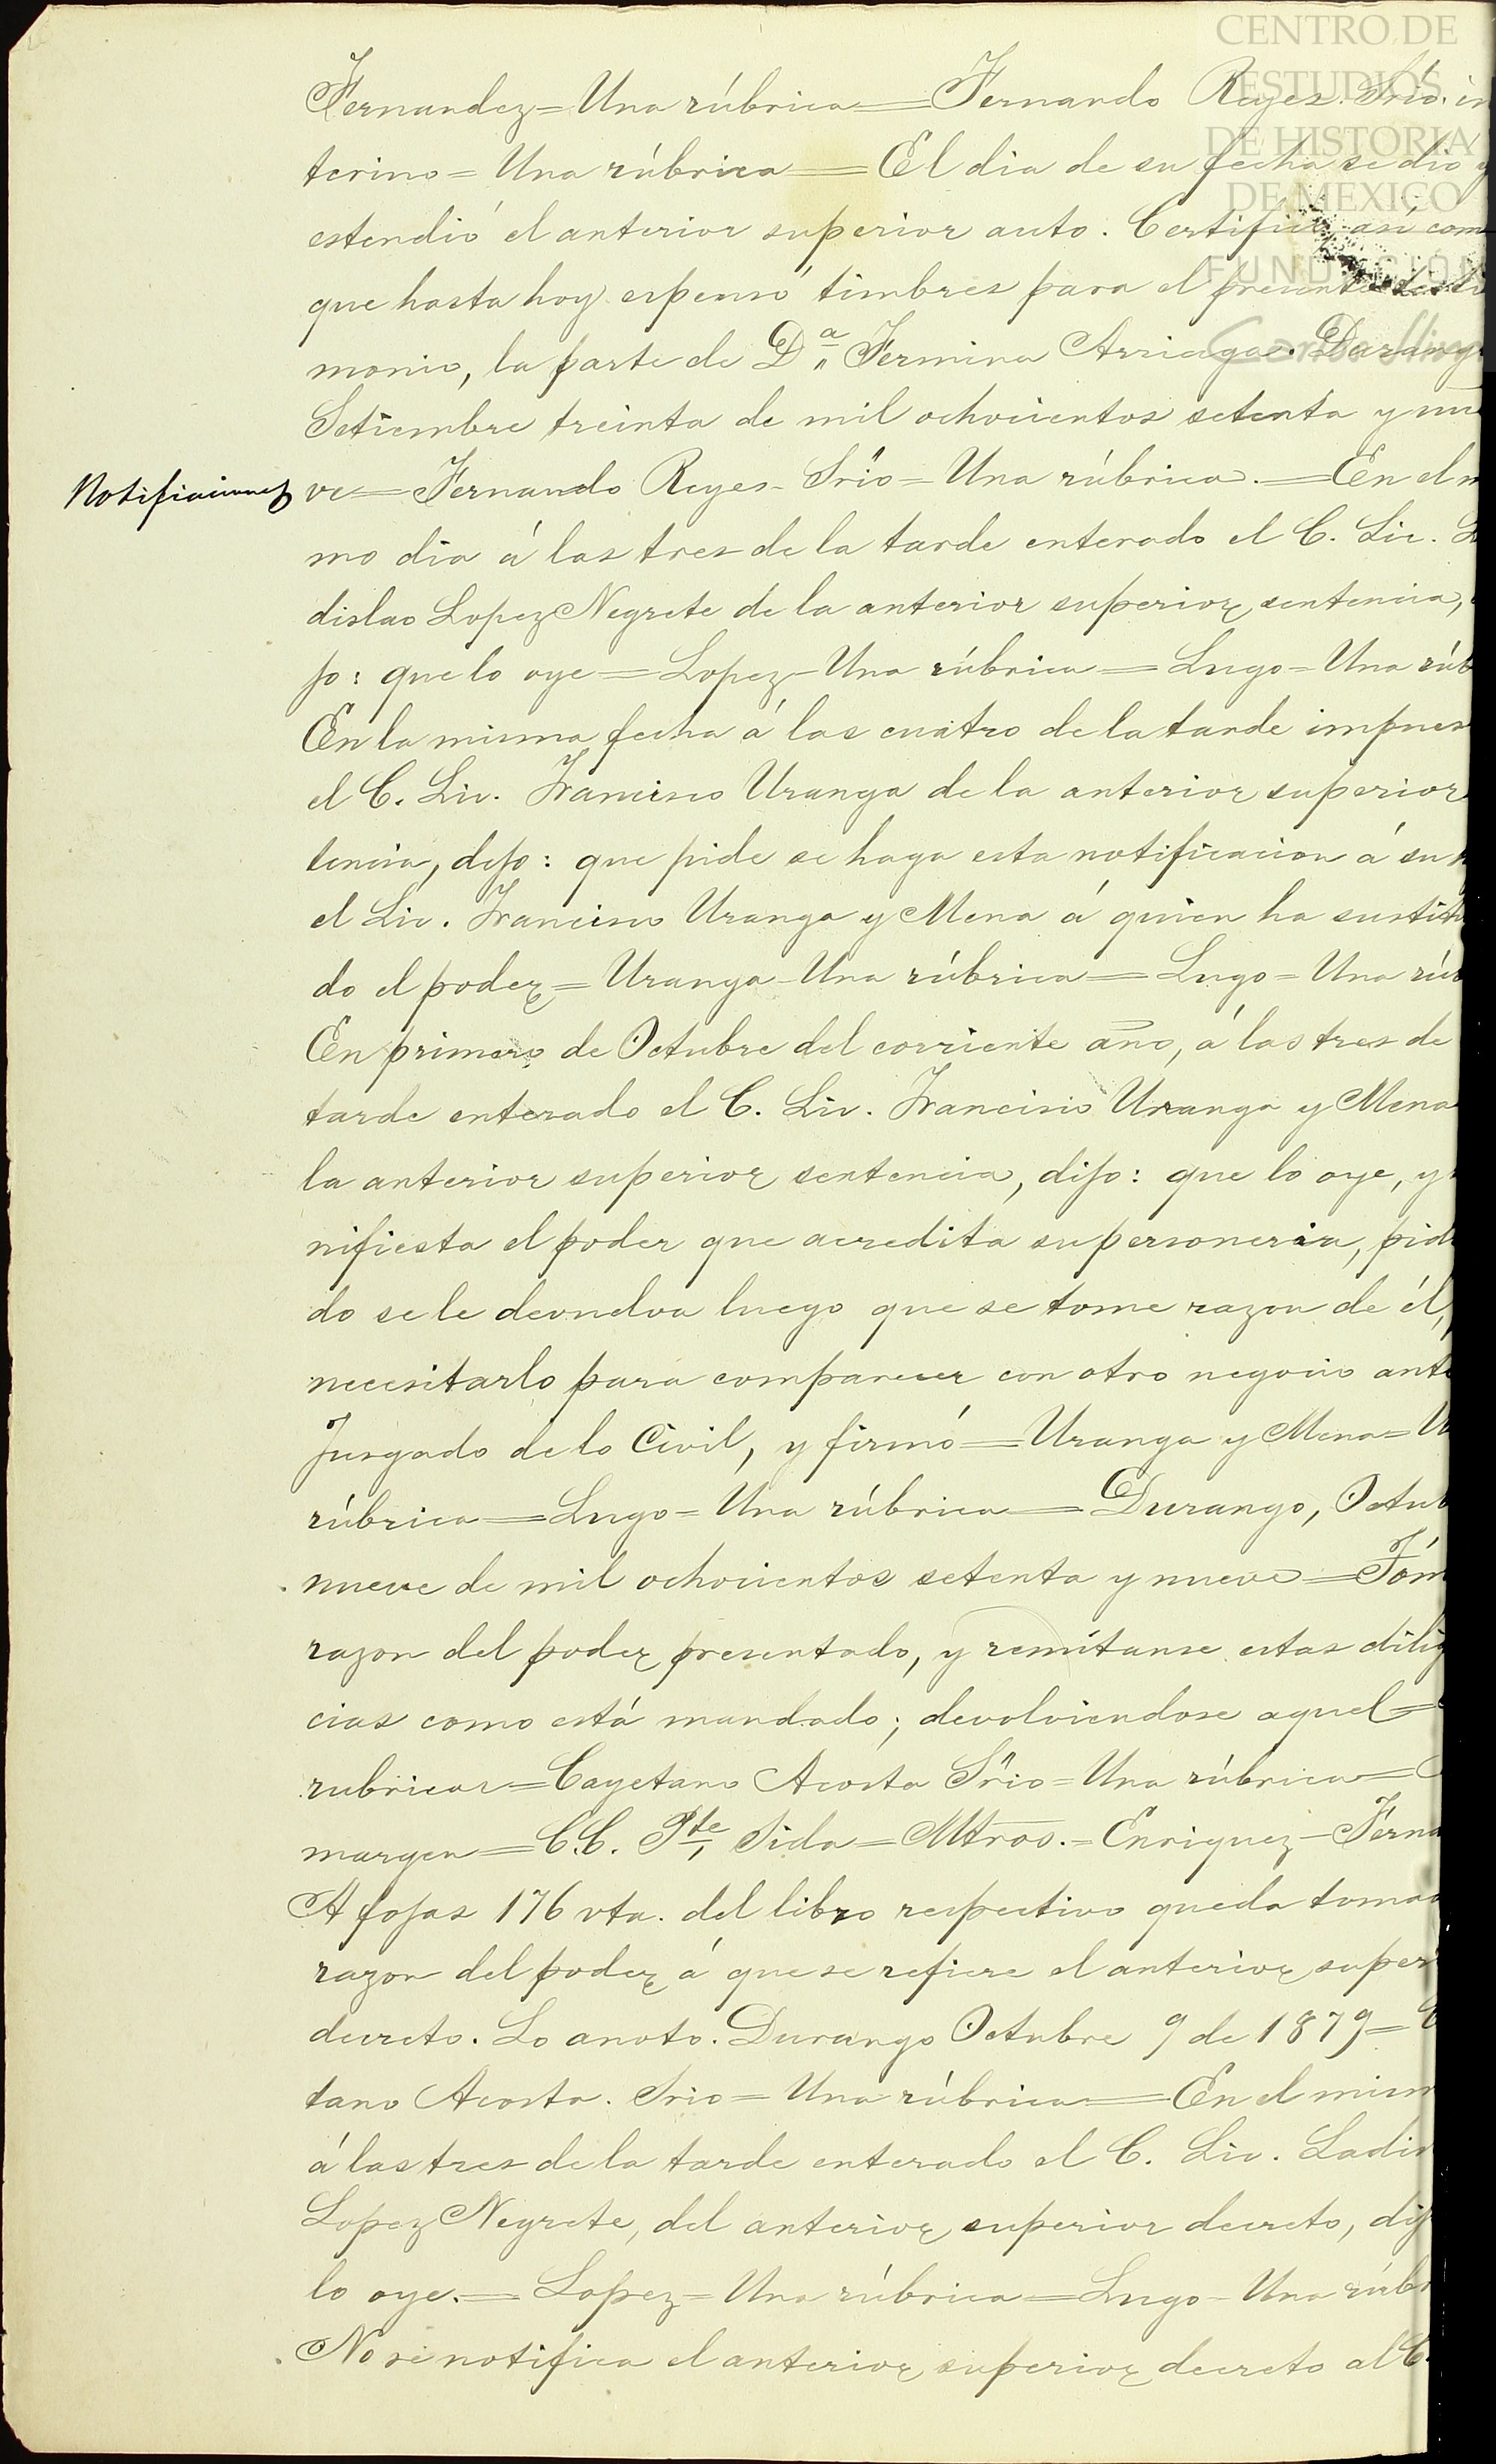 CENTRO DE
ESTUDIOS
DE HISTORIA
DE MEXICO
FUNDACIÓN
Carlos Slim
Fernandez = Una rúbrica = Fernando Reyes. Srio. in
terino = Una rúbrica = El dia de su fecha se dió y
estendió el anterior superior auto. Certifico, así com
que hasta hoy espensó timbres para el presente testi
monio, la parte de Dª Fermina Arriaga. Durang
Setiembre treinta de mil ochocientos setenta y nue
Notificaciones
ve = Fernando Reyes - Srio = Una rúbrica. = En el m
mo dia á las tres de la tarde enterado el C. Lic. L
dislao Lopez Negrete de la anterior superior sentencia,
jo: que lo oye = Lopez - Una rúbrica = Lugo = Una rúb
En la misma fecha á las cuatro de la tarde impues
el C. Lic. Francisco Uranga de la anterior superior
tencia, dijo: que pide se haga esta notificacion á su
el Lic. Francisco Uranga y Mena á quien ha sustitu
do el poder = Uranga - Una rúbrica = Lugo = Una rúb
En primero de Octubre del corriente año, á las tres de
tarde enterado el C. Lic. Francisco Uranga y Mena
la anterior superior sentencia, dijo: que lo oye, y
nifiesta el poder que acredita su personeria, pid
do se le devuelva luego que se tome razon de él,
necesitarlo para comparecer con otro negocio ante
Jusgado de lo Civil, y firmó = Uranga y Mena = U
rúbrica = Lugo = Una rúbrica = Durango, Octub
nueve de mil ochocientos setenta y nueve = Tóm
razon del poder presentado, y remítanse estas dilig
cias como está mandado; devolviendose aquel =
rubricas = Cayetano Acosta Srio = Una rúbrica =
margen = C.C. Pte Sida = Mtros. = Enriquez - Ferna
A fojas 176 vta. del libro respectivo queda tomad
razon del poder á que se refiere el anterior superi
decreto. Lo anoto. Durango Octubre 9 de 1879 = C
tano Acosta. Srio = Una rúbrica = En el mism
á las tres de la tarde enterado el C. Lic. Ladis
Lopez Negrete, del anterior superior decreto, dij
lo oye. = Lopez = Una rúbrica = Lugo - Una rúbr
No se notifica el anterior superior decreto al C.